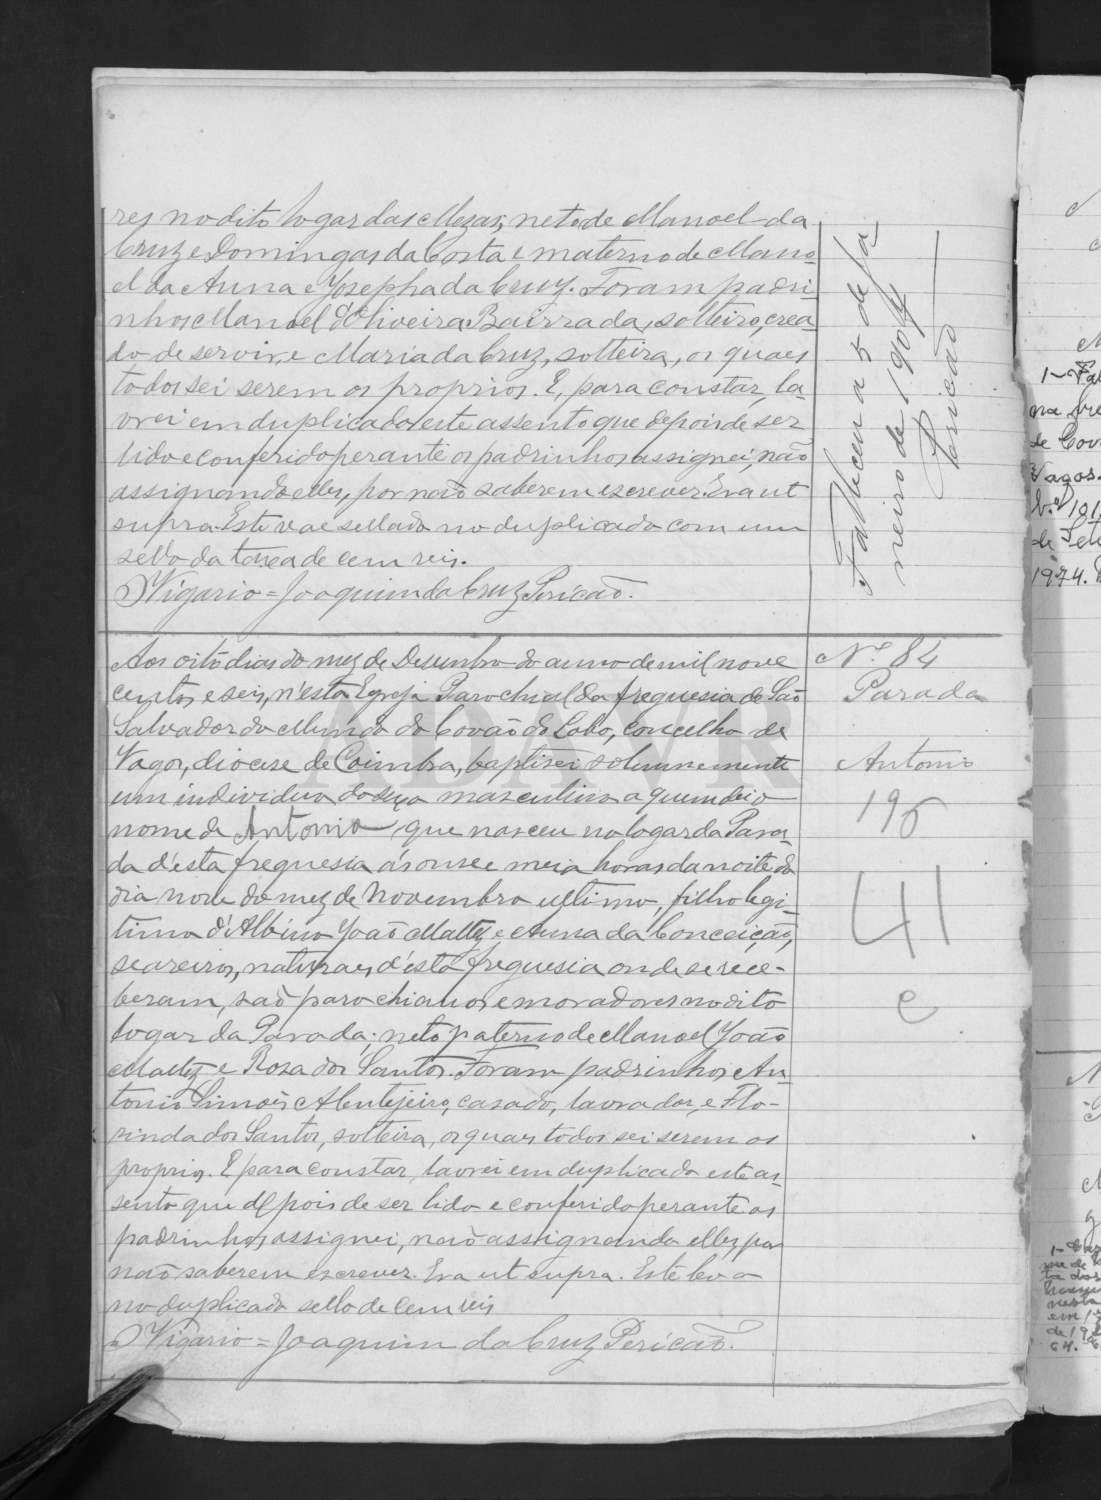 res no dito logar das Mezas, neto de Manoel da
Cruz e Domingas da Costa e materno de Mano-
el da Anna e Josepha da Cruz. Foram padri-
nhos Manoel d'Oliveira Bairrada, solteiro, crea-
do de servir, e Maria da Cruz, solteira, os quaes
todos sei serem os proprios. E, para constar, la-
vrei em duplicado este assento que depois de ser
lido e conferido perante os padrinhos assignei, não
assignando elles, por não saberem escrever. Era ut
supra. Este vae sellado no duplicado com um
sello da taxa de cem reis.
O Vigario = Joaquim da Cruz Pericão.
Falleceu a 5 de Ja
neiro de 1907
Pericão
Aos oito dias do mez de Desembro do anno de mil nove
centos e seis, n'esta Egreja Parochial da freguesia de São
Salvador do Mundo do Covão do Lobo, concelho de
Vagos, diocese de Coimbra, baptisei solemnemente
um individuo do sexo masculino a quem dei o
nome de Antonio que nasceu no logar da Para-
da d'esta freguesia ás onze e meia horas da noite do
dia nove do mez de Novembro ultimo, filho legi-
timo d'Albino João Mattez e Anna da Conceição,
seareiros, naturaes d'esta freguesia onde se rece-
beram, são parochianos e moradores no dito
logar da Parada; neto paterno de Manoel João
Mattez e Rosa dos Santos. Foram padrinhos An-
tonio Simões Alentejeiro, casado, lavrador, e Flo-
rinda dos Santos, solteira, os quaes todos sei serem os
proprios. E para constar lavrei em duplicado este as-
sento que depois de ser lido e conferido perante os
padrinhos, assignei, não assignando elles, por
não saberem escrever. Era ut supra. Este leva
no duplicado sello de cem reis
O Vigario = Joaquim da Cruz Pericão.
Nº 84
Parada
Antonio
196
41
e
ADAVR
1-Fal
na fre
de Cov
Vagos
de Sete
1974.